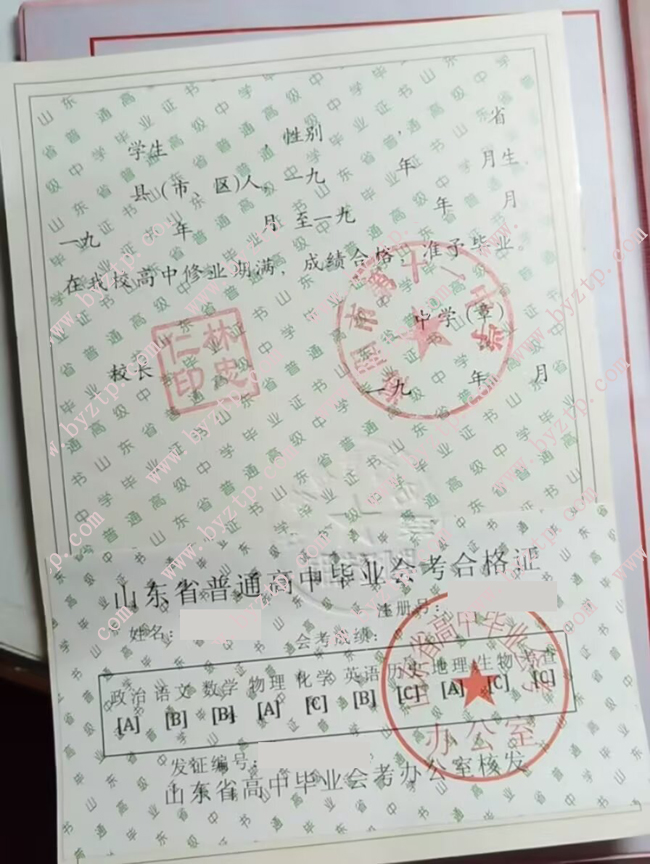 学生 ，性别 ， 省
县(市、区)人，一九 年 月生，
一九 年 月至一九 年 月
在我校高中修业期满，成绩合格，准予毕业。
中学(章)
校长
林忠仁印
一九 年 月
山东省普通高中毕业会考合格证
注册号：
姓名： 会考成绩：
政治 语文 数学 物理 化学 英语 历史 地理 生物 考查
[A] [B] [B] [A] [C] [B] [C] [A] [C] [C]
办公室
发证编号：
山东省高中毕业会考办公室核发
山东省普通高级中学毕业证书
www.byztp.com